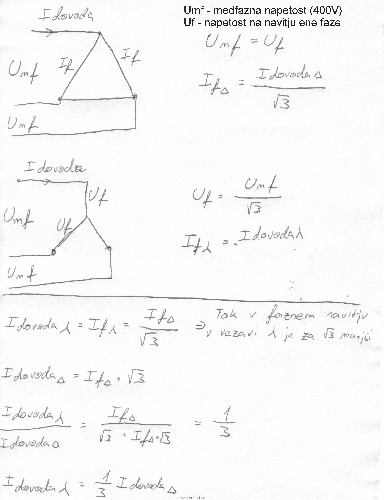 Umf - medfazna napetost (400V)
Uf - napetost na navitju ene faze
I dovoda
If If
Umf
Umf
Umf = Uf
If∆ = I dovoda∆ / √3
I dovoda
Uf
Umf
Uf
Umf
Uf = Umf / √3
Ifλ = I dovodaλ
I dovodaλ = Ifλ = If∆ / √3 ⇒ Tok v faznem navitju
v vezavi λ je za √3 manjši
I dovoda∆ = If∆ · √3
I dovodaλ / I dovoda∆ = If∆ / √3 · If∆ · √3 = 1/3
I dovodaλ = 1/3 I dovoda∆